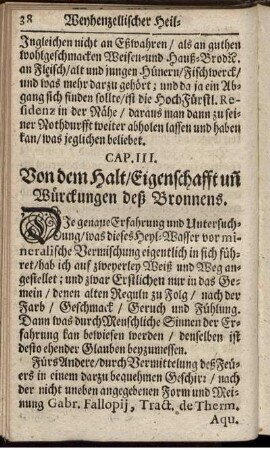 38 Weyhenzellischer Heil-
Ingleichen nicht an Eßwahren / als an guthen
wohlgeschmacken Weisen-und Hauß-Brodte.
an Fleisch/ alt und jungen Hünern/ Fischwerck/
und was mehr darzu gehört; und da ja ein Ab-
gang sich finden sollte/ ist die HochFürstl. Re-
sidenz in der Nähe / daraus man dann zu sei-
ner Nothdurfft weiter abholen lassen und haben
kan/ was jeglichen beliebet.
CAP. III.
Von dem Halt/Eigenschafft uñ
Würckungen deß Bronnens.
DJe genaue Erfahrung und Untersuch-
ung/ was dieses Heyl-Wasser vor mi-
neralische Vermischung eigentlich in sich füh-
ret/ hab ich auf zweyerley Weiß und Weg an-
gestellet; und zwar Erstlichen nur in das Ge-
mein / denen alten Reguln zu Folg / nach der
Farb / Geschmack / Geruch und Fühlung.
Dann was durch Menschliche Sinnen der Er-
fahrung kan bewiesen werden / denselben ist
desto ehender Glauben beyzumessen.
Fürs Andere/ durch Vermittelung deß Feu-
ers in einem darzu bequehmen Geschirr/ nach
der nicht uneben angegebenen Form und Mei-
nung Gabr. Fallopij, Tract. de Therm.
Aqu.